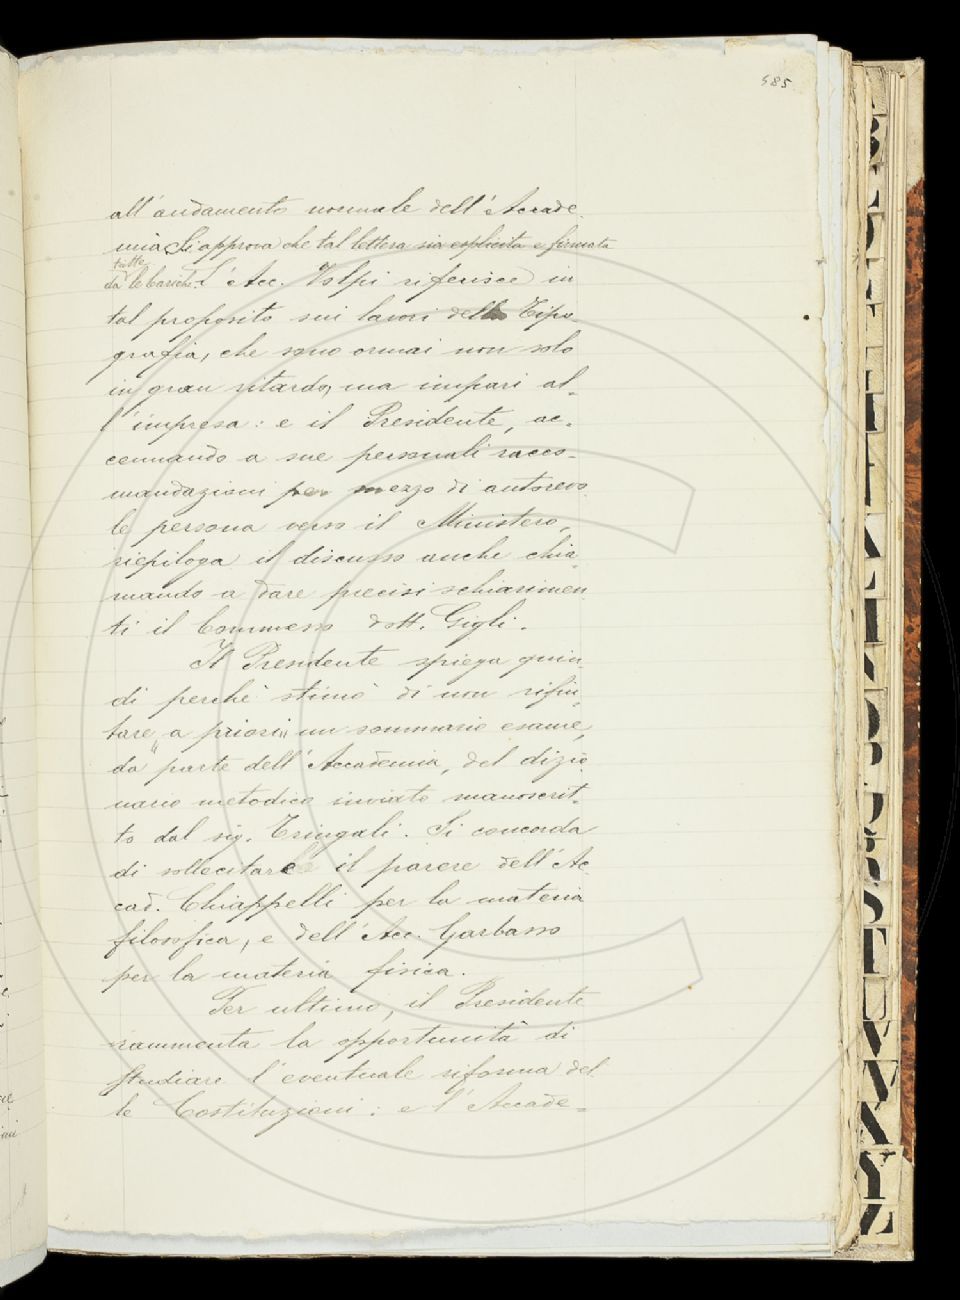 485
all'andamento normale dell'Accade
mia. Si approva che tal lettera sia esplicita e firmata
tutte
da le cariche. L'Acc. Volpi riferisce in
tal proposito sui lavori della Tipo-
grafia, che sono ormai non solo
in gran ritardo, ma impari al-
l'impresa: e il Presidente, ac-
cennando a sue personali racco-
mandazioni per mezzo di autorevo
le persona verso il Ministero,
riepiloga il discusso anche chia
mando a dare precisi schiarimen
ti il Commesso dott. Gigli.
Il Presidente spiega quin-
di perché stimò di non rifiu-
tare "a priori" un sommario esame,
da parte dell'Accademia, del dizio
nario metodico inviato manoscrit-
to dal sig. Tringali. Si concorda
di sollecitare il parere dell'Ac
cad. Chiappelli per la materia
filosofica, e dell'Acc. Garbasso
per la materia fisica.
Per ultimo, il Presidente
rammenta la opportunità di
studiare l'eventuale riforma del
le Costituzioni: e l'Accade-
B
C
D
E
F
I
L
N
O
P
Q
R
S
T
U
V
W
X
Y
Z